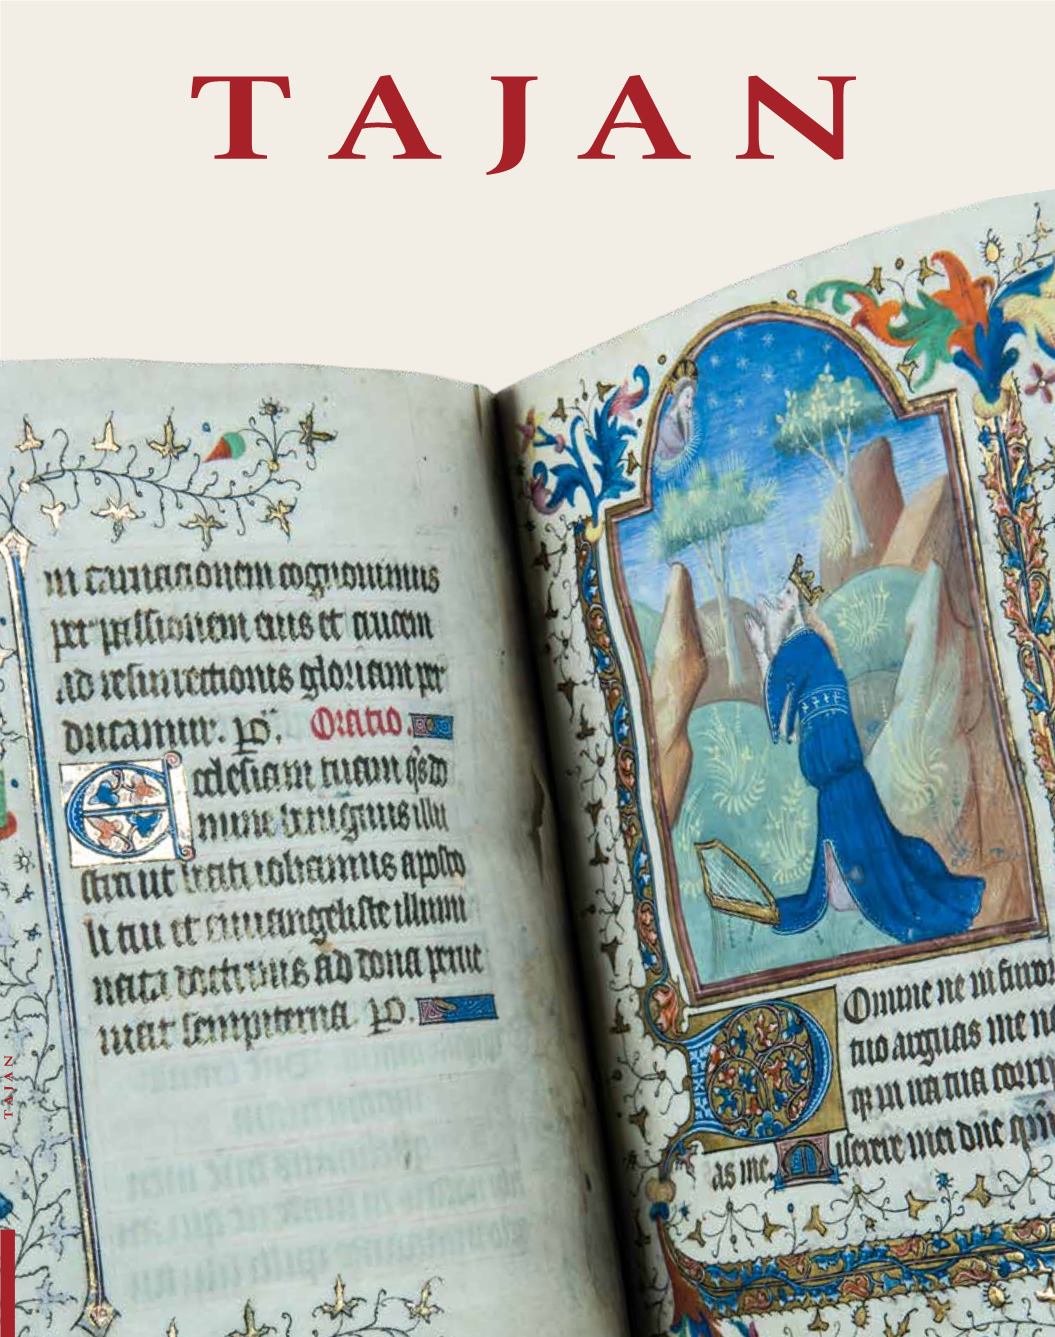 TAJAN
in carnationem cognouimus
per passionem eius et crucem
ad resurrectionis gloriam per
ducamur. p̄. Oratio.
Ecclesiam tuam q̄s do
mine benignus illu
stra ut beati iohannis aposto
li tui et euuangeliste illumi
nata doctrinis ad dona perue
niat sempiterna. p̄.
Domine ne in furor
tuo arguas me
in ira tua corrip
as me. Miserere mei dn̄e
TAJAN